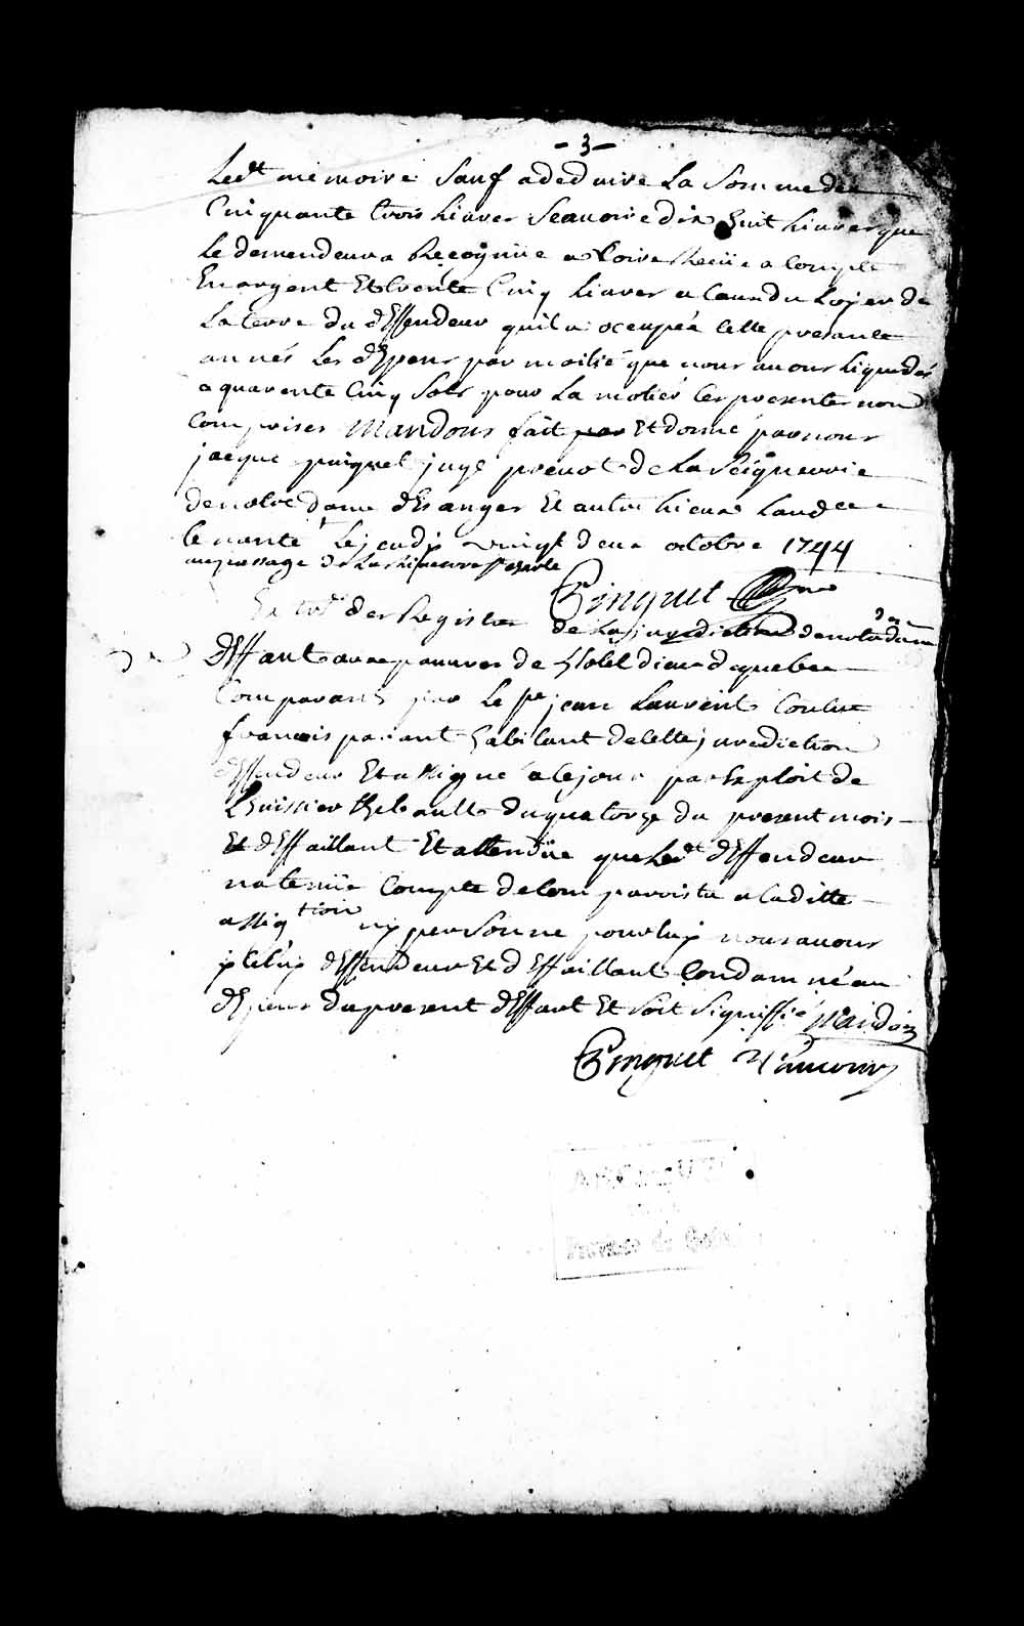 - 3 -
Ledt memoire Sauf a deduire La Somme de
Cinquante trois Livres Seavoire dix huit Livres que
Le demendeur a Recognüe avoire Recüe a Compte
En argent Et trente Cinq Livres a Cause du Loyer de
La terre du dEffendeur quil a occupéé Cette presante
année Les dEpens par moitié que nous avons Liquidés
a quarente Cinq Sols pour La motiéé Ces presentes non
Comprises Mandons fait par Et donné par nous
jacque pinguet juge prevot de La Seigneurie
de notre dame dEs anges Et autre Lieux
Le jeudy vingt deux octobre 1744
au passage de La
Pinguet
Ex tr des Registre de La jurediction de notre dame
dEffaut aux pauvres de Hotel dieu de quebec
Comparant par Le Pe jean Laurent Contre
francois parant habitant de Cette jurediction
dEffendeur Et assigné a Ce jour par Exploit de
Lhuissier thibault du quatorze du present mois
Et dEffaillant Et attendüe que Ledt dEffendeur
na tenüe Compte de Comparoistre a Laditte
assigtion ny personne pour Luy nous avons
yCeluy dEffendeur Et dEffaillant Condamné au
dEpens du present dEffaut Et Soit Signiffié Mandons
Pinguet Vaucour